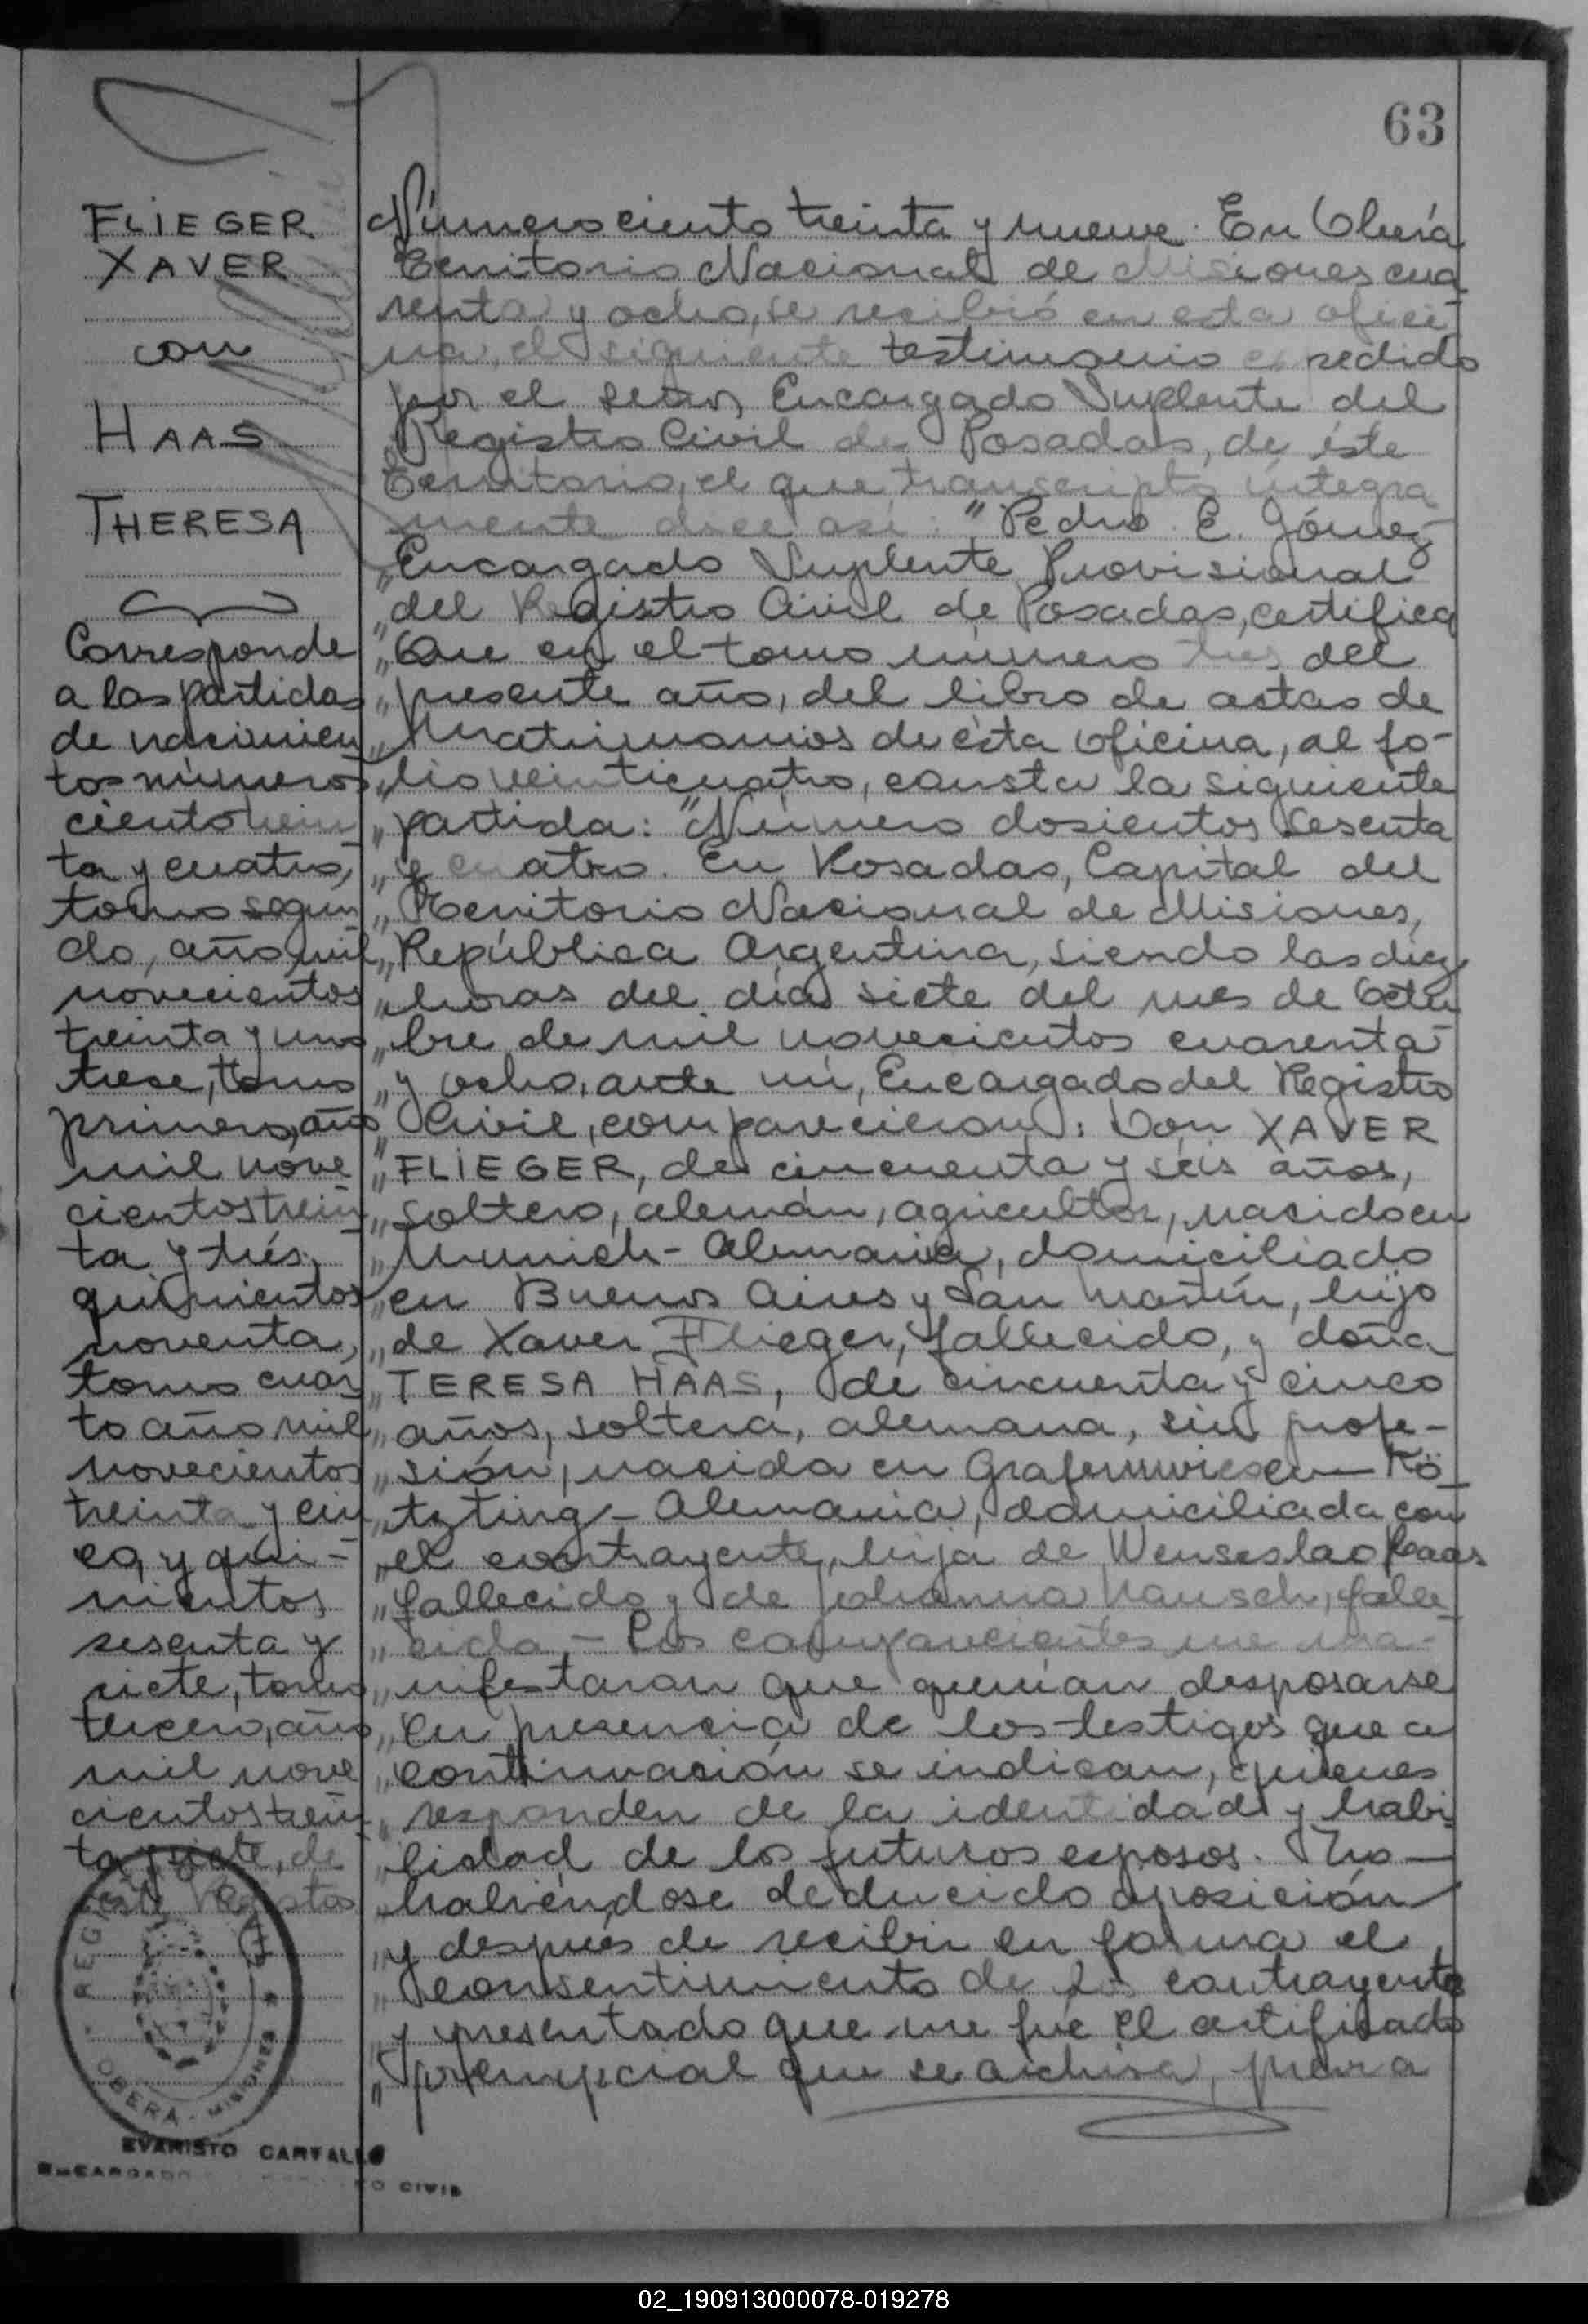 63
FLIEGER
XAVER
con
HAAS
THERESA
Corresponde
a las partidas
de nacimien
tos números
ciento trein
ta y cuatro,
tomo segun
do, año mil
novecientos
treinta y uno
trese, tomo
primero, año
mil nove
cientos trein
ta y trés,
quinientos
noventa,
tomo cuar
to año mil
novecientos
treinta y cin
co, y qui-
nientos
sesenta y
siete, tomo
tercero, año
mil nove
cientos trein
ta y siete, de
este Registro
REGISTRO CIVIL
OBERA - MISIONES
EVARISTO CARVALLO
ENCARGADO CIVIL
Número ciento treinta y nueve. En Oberá
Territorio Nacional de Misiones cua
renta y ocho, se recibió en esta ofici-
na, el siguiente testimonio expedido
por el señor Encargado Suplente del
Registro Civil de Posadas, de éste
territorio, el que transcripto íntegra
mente dice así: "Pedro E. Gómez
"Encargado Suplente Provisional
"del Registro Civil de Posadas, certifica
"Que en el tomo número tres del
"presente año, del libro de actas de
"Matrimonios de ésta oficina, al fo-
"lio veinticuatro, consta la siguiente
"partida: "Número dosientos sesenta
"y cuatro. En Posadas, Capital del
"Territorio Nacional de Misiones,
"República Argentina, siendo las diez
"horas del día siete del mes de Octu
"bre de mil novecientos cuarenta
"y ocho, ante mí, Encargado del Registro
Civil, comparecieron: Don XAVER
"FLIEGER, de cincuenta y séis años,
"soltero, alemán, agricultor, nacido en
"Munich - Alemania, domiciliado
"en Buenos Aires y San Martín, hijo
"de Xaver Flieger, fallecido, y doña
"TERESA HAAS, de cincuenta y cinco
"años, soltera, alemana, sin profe-
"sión, nacida en Grafenwiesen - Kö
"tzting - Alemania, domiciliada con
"el contrayente, hija de Wenseslao Haas
"fallecido y de Johanna Rausch, falle
"cida. - Los comparecientes me ma-
"nifestaron que querían desposarse
"en presencia de los testigos que a
"continuación se indican, quienes
"responden de la identidad y habi
"lidad de los futuros esposos. No -
"habiéndose deducido oposición
"y después de recibir en forma el
"consentimiento de los contrayentes
y presentado que me fué el certificado
"prenupcial que se archiva, para
02_190913000078-019278